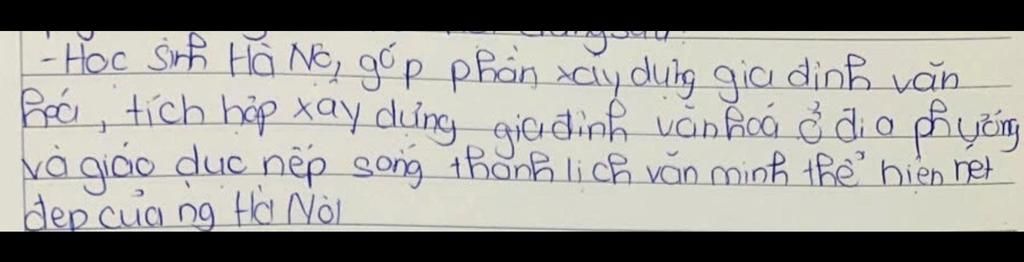 - Học sinh Hà Nội góp phần xây dựng gia đình văn
hoá, tích hợp xây dựng gia đình văn hoá ở địa phương
và giáo dục nếp sống thanh lịch văn minh thể hiện nét
đẹp của ng Hà Nội